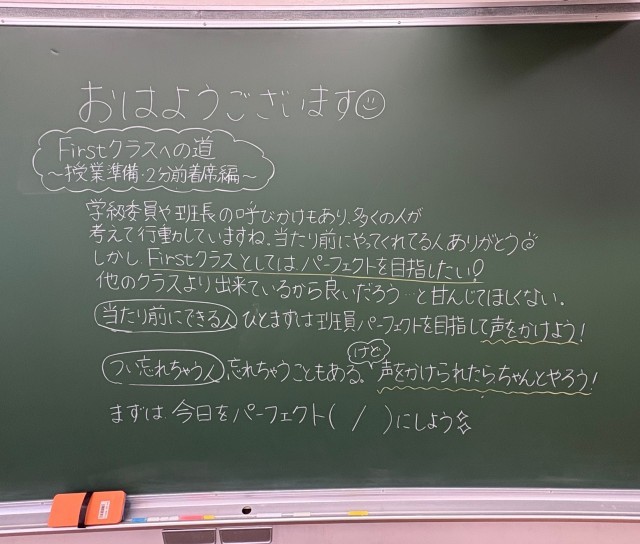 おはようございます☺
Firstクラスへの道
～授業準備・2分前着席編～
学級委員や班長の呼びかけもあり、多くの人が
考えて行動していますね。当たり前にやってくれてる人ありがとう☺
しかし、Firstクラスとしては、パーフェクトを目指したい!
他のクラスより出来ているから良いだろう…と甘んじてほしくない。
当たり前にできる人 ひとまずは班員パーフェクトを目指して声をかけよう!
つい忘れちゃう人 忘れちゃうこともある。けど声をかけられたらちゃんとやろう!
まずは、今日をパーフェクト( / )にしよう